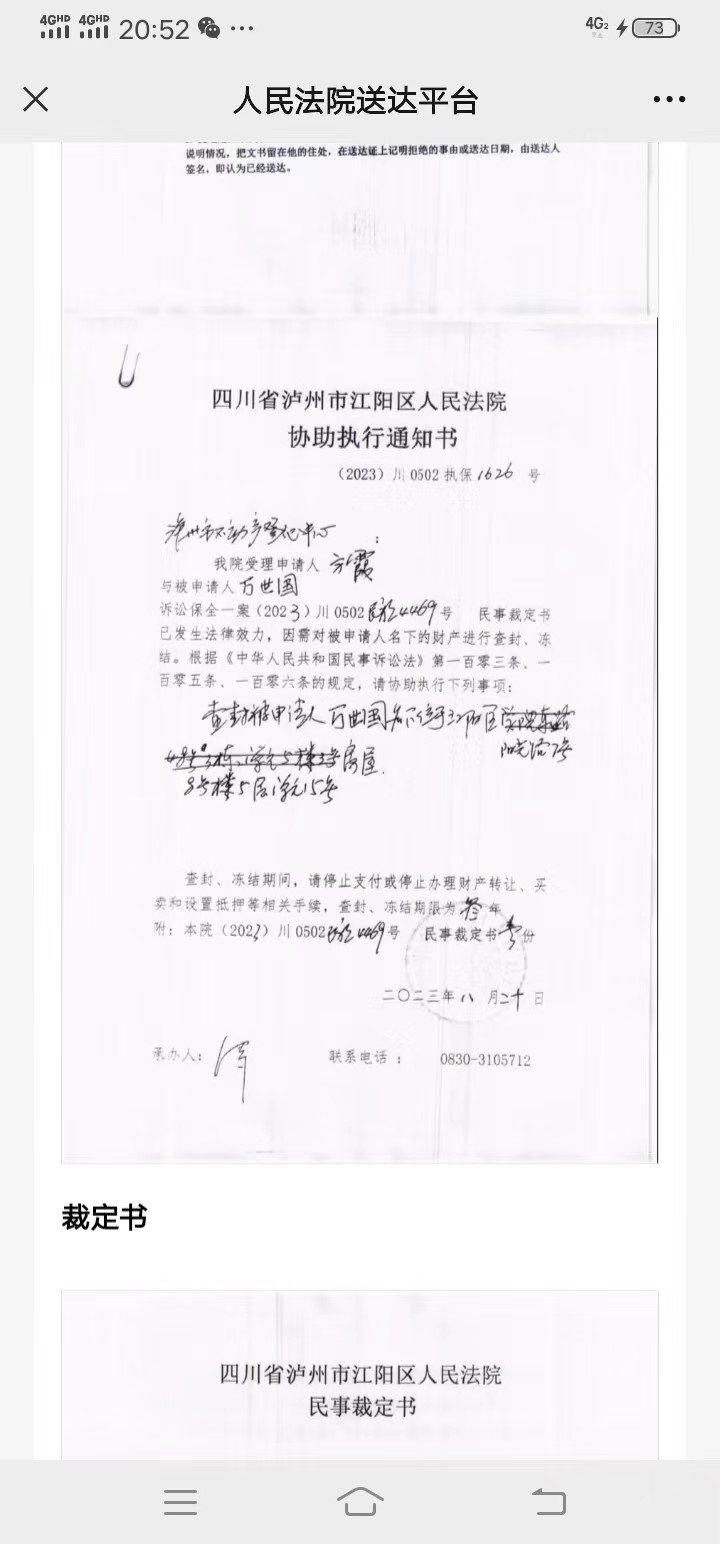 4GHD 4GHD 20:52 ... 4G2 73
人民法院送达平台
说明情况，把文书留在他的住处，在送达证上记明拒绝的事由或送达日期，由送达人
签名，即认为已经送达。
四川省泸州市江阳区人民法院
协助执行通知书
（2023）川 0502 执保 1626 号
泸州市不动产登记中心：
我院受理申请人 方霞
与被申请人 万世国
诉讼保全一案（2023）川 0502 4469 号 民事裁定书
已发生法律效力，因需对被申请人名下的财产进行查封、冻
结。根据《中华人民共和国民事诉讼法》第一百零三条、一
百零五条、一百零六条的规定，请协助执行下列事项：
查封被申请人万世国名下位于江阳区
房屋.
8号楼5层 15号
查封、冻结期间，请停止支付或停止办理财产转让、买
卖和设置抵押等相关手续，查封、冻结期限为 叁 年
附：本院（2023）川 0502 4469 号 民事裁定书 壹 份
二〇二三年 八 月 二十 日
承办人： 联系电话： 0830-3105712
裁定书
四川省泸州市江阳区人民法院
民事裁定书